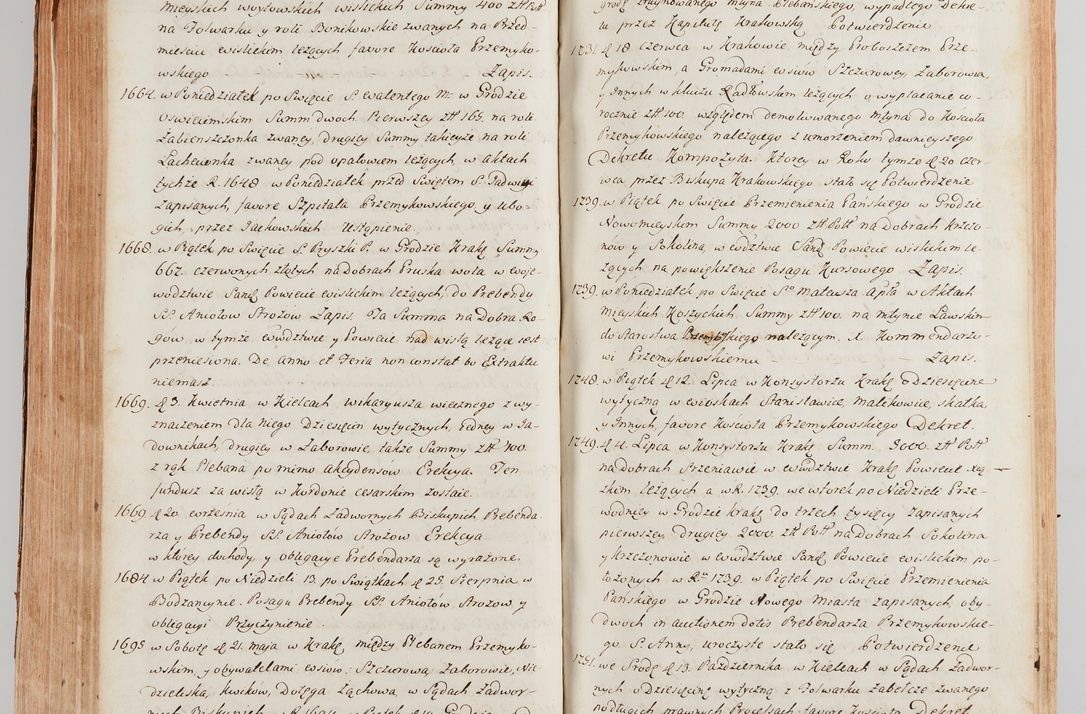 mieyskich woytowskich wislickich Summy 400 zł Poll
na Folwarku y roli Bonikowskie zwanych na Przed-
mieściu wislickim leżących favore Kościoła Przemyko-
wskiego Zapis.
1664. w Poniedziałek po Swięcie S. Walentego M. w Grodzie
Oswięcimskim Summ dwoch Pierwszey zł 165. na roli
Zabienszczonka zwaney, drugiey Summy takieyże na roli
Lachewonka zwaney pod opatowiem leżących w aktach
tychże R. 1648 w Poniedziałek przed Swiętem S. Jadwigi
Zapisanych, favore Szpitala Przemykowskiego y ubo-
gich, przez Jackowskich Ustąpienie.
1668 w Piątek po Swięcie S. Pryszki P. w Grodzie Krakł Summy
667. czerwonych złotych na dobrach Gruska wola w Woje-
wodztwie Sandł Powiecie wislickim leżących, do Prebendy
SS. Aniołow Strożow Zapis. Ta Summa na Dobra Ro-
gow w tymże Ewodztwie y Powiecie nad wisłą leżące iest
przeniesiona. De anno et Feria non constat bo Extraktu
niemasz.
1669. d. 3. Kwietnia w Kielcach wikaryusza wiecznego z wy-
znaczeniem dla niego dziesięcin wytycznych, iedney w Ja-
downikach, drugiey w Zaborowie, także Summy zł 400.
z rąk Plebana po mimo akcydensow Erekcya. Ten
fundusz za wisłą w Kordonie cesarskim zostaie.
1669 d 20 września w Sądach Zadwornych Biskupich, Prebenda-
rza y Prebendy SS. Aniołow Strożow Erekcya
w ktorey dochody y obligacye Prebendarza są wyrażone.
1684 w Piątek po Niedzieli 13. po Swiątkach d 25. Sierpnia w
Bodzancynie. Posagu Prebendy SS. Aniołow Strozow y
obligacyi Przyczynienie.
1695 w Sobotę d 21. maja w Krakł między Plebanem Przemyko-
wskim, y obywatelami wsiow: Szczurowa, Zaborowie, Nie-
dzieliska, Kwikow, Dołęga Łąchowa, w Sądach Zadwor-
nych Biskupich
grodz zruynowanego młyna Plebańskiego, wypadłego Dekre-
tu przez Kapitułę Krakowską Potwierdzenie
1731. d 18 czerwca w Krakowie między Proboszczem Prze-
mykowskim, a Gromadami wsiow Szczurowey, Zaborowia,
y Innych w kluczu Radłowskim leżących o wypłacanie co-
rocznie zł 100. względem demolowanego młyna do Kościoła
Przemykowskiego należącego z umorzeniem dawnieyszego
Dekretu Kompozyta. Ktorey w Roku tymże d 20 czer-
wca przez Biskupa Krakowskiego stało się Potwierdzenie
1739. w Piątek po Swięcie Przemienienia Pańskiego w Grodzie
Nowomieyskim Summy 2000 zł Poll na dobrach Krzczo-
now y Sokolina, w Ewodztwie Sandł Powiecie wislickim le-
żących na powiększenie Posagu Kursowego Zapis.
1739. w Poniedziałek po Swięcie S. Mateusza Apła w Aktach
Mieyskich Koszyckich Summy zł 100. na młynie Ławskim
do Starostwa Przemykkiego należącym, X. Kommendarzo-
wi Przemykowskiemu Zapis.
1748. w Piątek d 12. Lipca w Konsystorzu Krakł o dziesięcinę
wytyczną w wioskach Stanisławice, Małkowice, Skałka,
y Innych, favore Kościoła Przemykowskiego Dekret.
1749. d 4. Lipca w Konsystorzu Krakł Summ. 3000. zł Poll
na dobrach Przeniawie w Ewodztwie Krakł Powiecie Xią-
żkim leżących a w R. 1739. we wtorek po Niedzieli Prze-
wodniey w Grodzie Krakł do trzech tysięcy Zapisanych
pierwszey, drugiey 2000 zł Poll na dobrach Sokolina
y Krzczonowie w Ewodztwie Sandł Powiecie wislickim po-
łożonych w R. 1739. w Piątek po Swięcie Przemienienia
Pańskiego w Grodzie Nowego Miasta zapisanych, oby-
dwoch in auctionem dotis Prebendarza Przemykowskie-
go S. Anny, uroczyste stało się Potwierdzenie
1751. we Srodę d 13. Października w Kielcach w Sądach Zadwor-
nych o dziesięcinę wytyczną z Folwarku Zabełcze zwanego
podługich prawnych Processach favore Kościoła Dekret